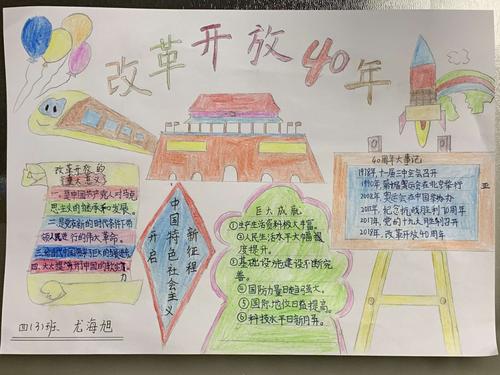 改革开放40年
改革开放的
重大意义
一、是中国共产党人对马克
思主义的继承和发展。
二、是党在新的时代条件下带
领人民进行的伟大革命。
四、大大提高了中国的软实
力
中国特色社会主义
开启
新征程
巨大成就
①生产生活资料极大丰富。
②人民生活水平大幅度
度提升。
③基础设施建设不断完
善。
④国防力量日趋强大。
⑤国际地位日益提高。
⑥科技水平日新月异。
40周年大事记
1978年,十一届三中全会召开
1990年,第11届亚运会在北京举行
2008年,奥运会在中国举办
2017年,党的十九大胜利召开
2018年,改革开放40周年
四(3)班、尤海旭